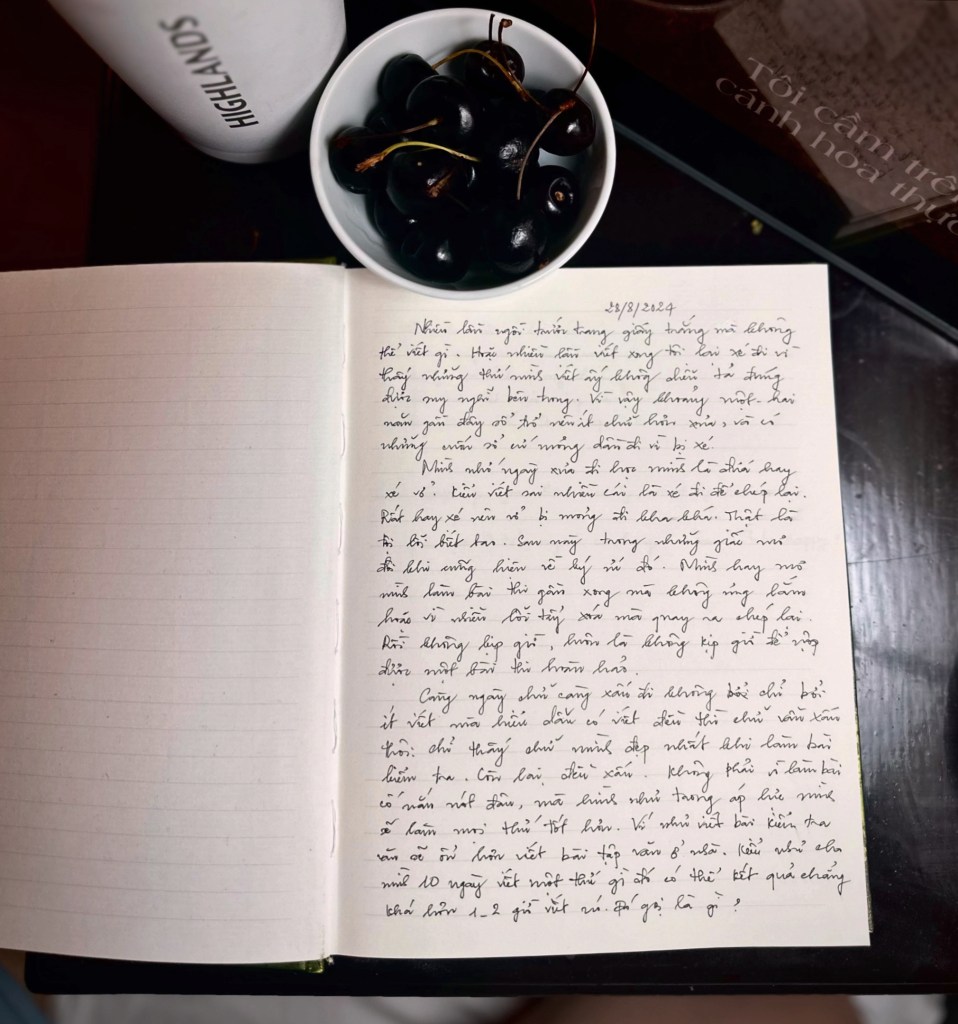 HIGHLANDS
Tôi cầm trên
cánh hoa thực
28/8/2024
Nhiều lần ngồi trước trang giấy trắng mà không
thể viết gì. Hoặc nhiều lần viết xong tôi lại xé đi vì
thấy những thứ mình viết ấy không diễn tả đúng
được suy nghĩ bên trong. Vì vậy khoảng một-hai
năm gần đây số trở nên ít chữ hơn xưa, và có
những cuốn sổ cứ mỏng dần đi vì bị xé.
Mình nhớ ngày xưa đi học mình là đứa hay
xé vở. Kiểu viết sai nhiều cái là xé đi để chép lại.
Rất hay xé nên vở bị mỏng đi kha khá. Thật là
tội lỗi biết bao. Sau này trong những giấc mơ
đôi khi cũng hiện về ký ức đó. Mình hay mơ
mình làm bài thi gần xong mà không ưng lắm
hoặc vì nhiều lỗi tẩy xóa mà quay ra chép lại.
Rồi không kịp giờ, luôn là không kịp giờ để nộp
được một bài thi hoàn hảo.
Càng ngày chữ càng xấu đi không bởi chỉ bởi
ít viết mà hiếu dẫu có viết đều thì chữ vẫn xấu
thôi. chỉ thấy chữ mình đẹp nhất khi làm bài
kiểm tra. Còn lại đều xấu. Không phải vì làm bài
cố nắn nót đâu, mà hình như trong áp lực mình
sẽ làm mọi thứ tốt hơn. Ví như viết bài kiểm tra
văn sẽ ổn hơn viết bài tập văn ở nhà. Kiểu như cho
mình 10 ngày viết một thứ gì đó có thể kết quả chẳng
khá hơn 1-2 giờ viết nó. Đó gọi là gì?